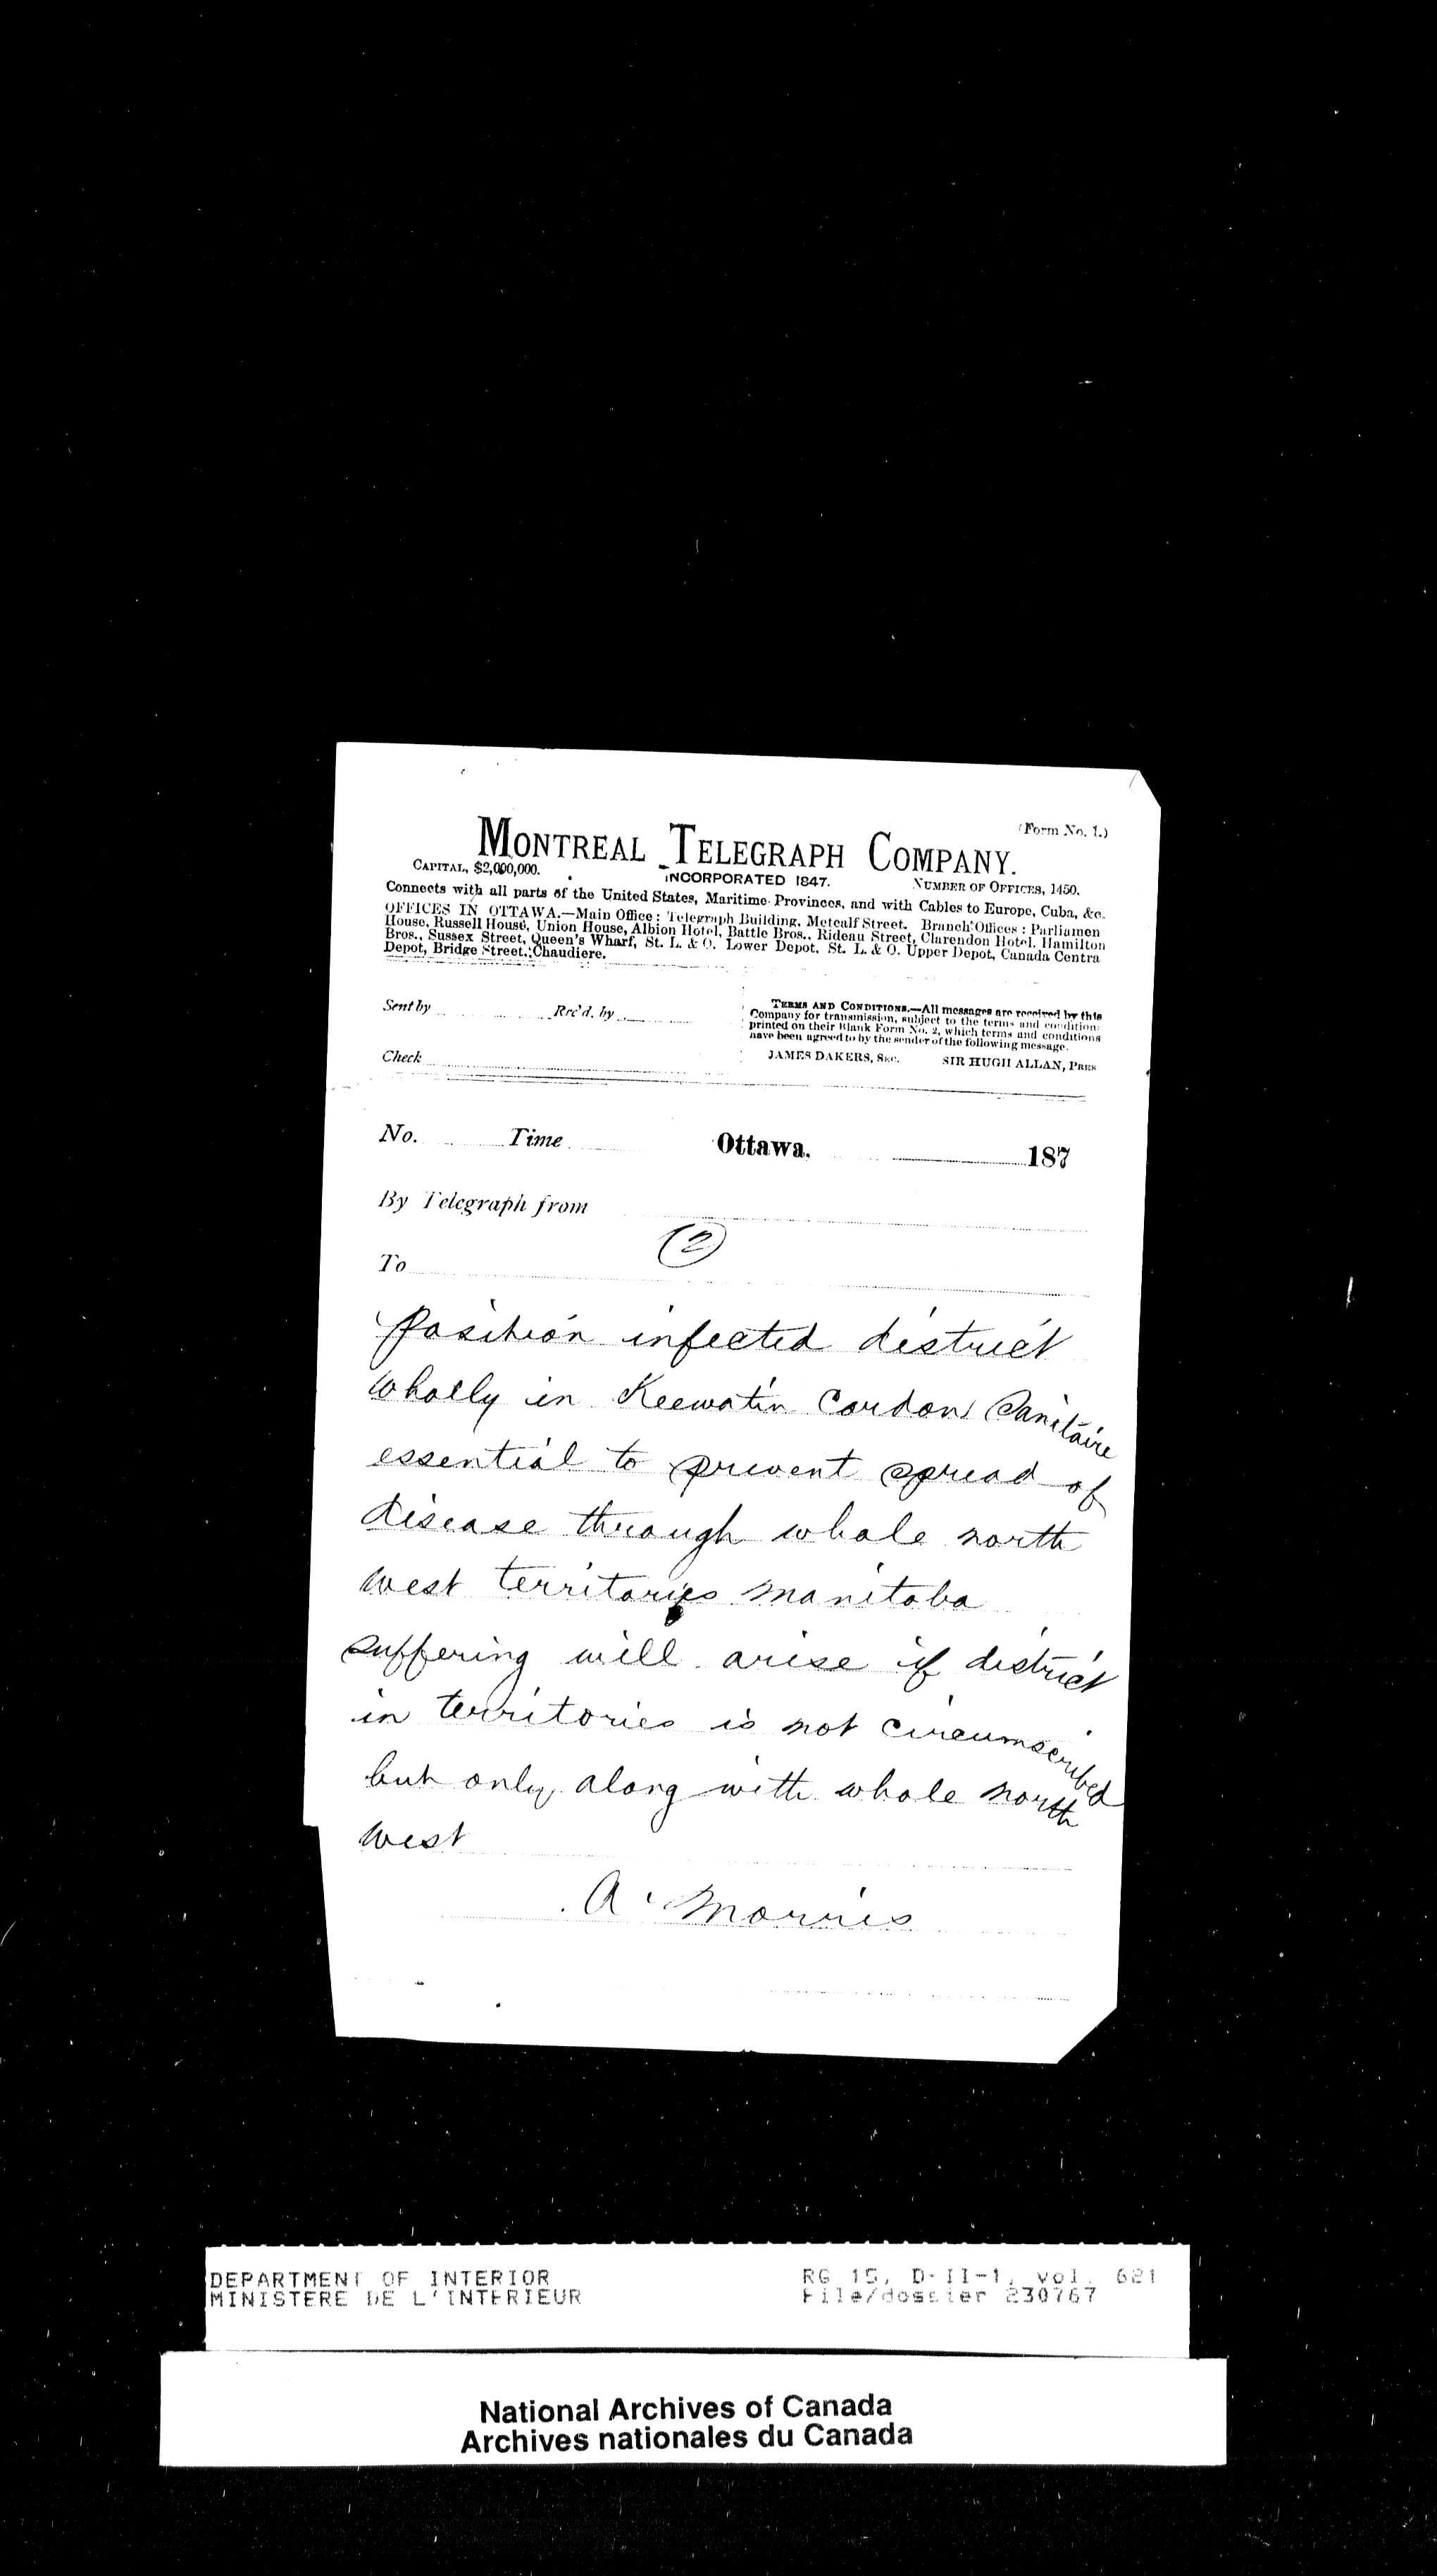 (Form No. 1.)
MONTREAL TELEGRAPH COMPANY.
CAPITAL, $2,000,000. INCORPORATED 1847. NUMBER OF OFFICES, 1450.
Connects with all parts of the United States, Maritime Provinces, and with Cables to Europe, Cuba, &c.
OFFICES IN OTTAWA.—Main Office: Telegraph Building, Metcalf Street. Branch Offices: Parliamen
House, Russell House, Union House, Albion Hotel, Battle Bros., Rideau Street, Clarendon Hotel, Hamilton
Bros., Sussex Street, Queen's Wharf, St. L. & O. Lower Depot, St. L. & O. Upper Depot, Canada Centra
Depot, Bridge Street, Chaudiere.
Sent by Rec'd. by
Check
TERMS AND CONDITIONS.—All messages are received by this
Company for transmission, subject to the terms and condition
printed on their Blank Form No. 2, which terms and conditions
have been agreed to by the sender of the following message.
JAMES DAKERS, SEC. SIR HUGH ALLAN, PRES
No. Time Ottawa. 187
By Telegraph from
(2)
To
Position infected district
wholly in Keewatin Cordon Sanitaire
essential to prevent spread of
disease through whole north
west territories manitoba
suffering will arise if district
in territories is not circumscribed
but only along with whole north
west
A. Morris
DEPARTMENT OF INTERIOR RG 15, D-II-1, vol. 621
MINISTERE DE L'INTERIEUR File/dossier 230767
National Archives of Canada
Archives nationales du Canada